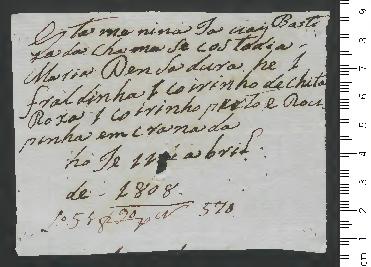 Esta menina Ja vai Bauti
zada chama se costodia
Maria
fraldinha 1 coirinho de chita
Roxa 1 coirinho preto e Rou
pinha emcarnada
hoJe 11 de abril
de 1808
570